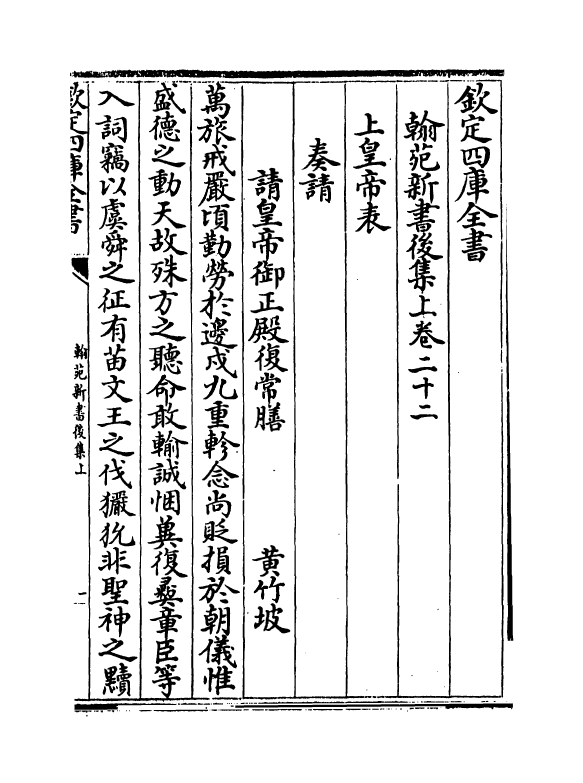 欽定四庫全書
翰苑新書後集上卷二十二
上皇帝表
奏請
請皇帝御正殿復常膳 黄竹坡
萬旅戒嚴頃勤勞於邊戍九重軫念尚貶損於朝儀惟
盛德之動天故殊方之聽命敢輸誠悃冀復彝章臣等
入詞竊以虞舜之征有苗文王之伐玁狁非聖神之黷
欽定四庫全書
翰苑新書後集上